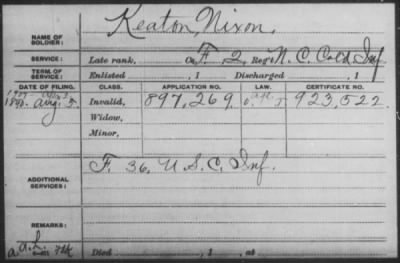 NAME OF SOLDIER: Keaton Nixon.
SERVICE: Late rank, Co. F. 2, Reg't N. C. Col'd Inf.
TERM OF SERVICE: Enlisted , 1 Discharged , 1
DATE OF FILING. CLASS. APPLICATION NO. LAW. CERTIFICATE NO.
1890. Aug. 5. Invalid, 897,269. 923,522
Widow,
Minor,
ADDITIONAL SERVICES: F. 36, U. S. C. Inf.
REMARKS:
Died , 1 , at